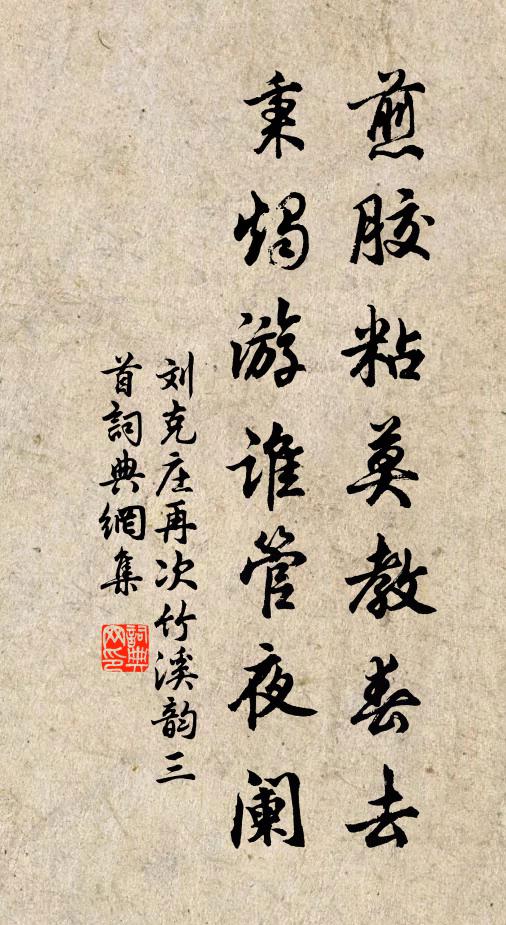 煎胶粘莫教春去
秉烛游谁管夜阑
刘克庄再次竹溪韵三
首词典網集
詞典网印